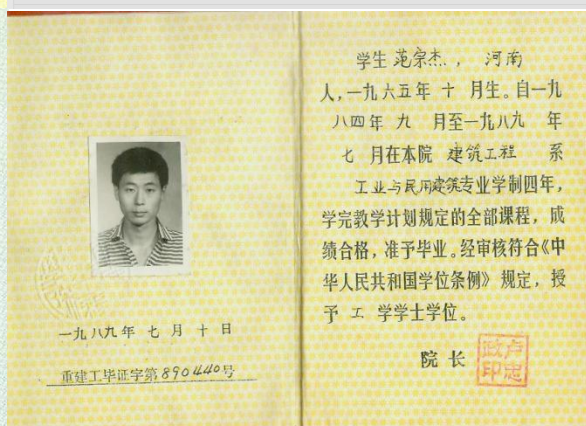 一九八九年 七 月 十 日
重建工毕证字第890440号
学生 范宗杰 ， 河南
人，一九六五年 十 月生。自一九
八四年 九 月至一九八九 年
七 月在本院 建筑工程 系
工业与民用建筑专业学制四年，
学完教学计划规定的全部课程，成
绩合格，准予毕业。经审核符合《中
华人民共和国学位条例》规定，授
予 工 学学士学位。
院 长